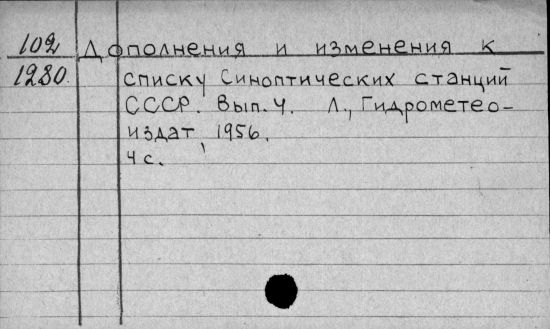 102 Дополнения и изменения к
1280. списку Синоптических станций
СССР. Вып. 4. Л., Гидрометео-
издат, 1956.
4 с.